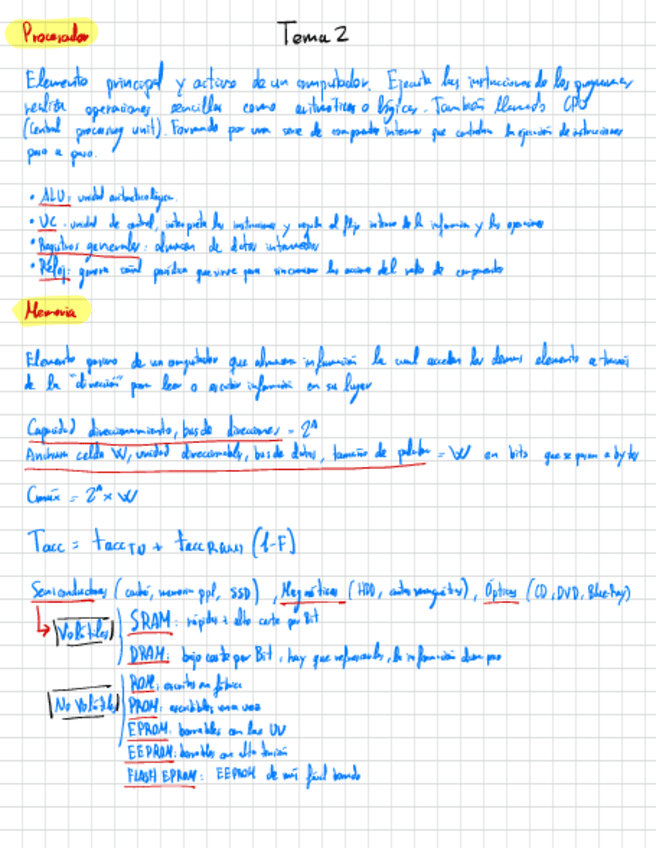 Procesador
Tema 2
Elemento principal y activo de un computador. Ejecuta las instrucciones de los programas
realiza operaciones sencillas como aritméticas o lógicas. También llamado CPU
(Central processing unit). Formando por una serie de internos que controlan la ejecución de instrucciones
paso a paso.
• ALU: unidad aritmeticológica.
• UC: unidad de control, interpreta las instrucciones y regula el flujo interno de la información y las operaciones
• Registros generales: almacen de datos intermedios
• Reloj: genera señal periódica que sirve para sincronizar las acciones del resto de
Memoria
Elemento pasivo de un computador que almacena información la cual acceden los demas elementos a través
de la "dirección" para leer o escribir información en su lugar
Capacidad direccionamiento, bus de direcciones = 2^A
Anchura celda W, unidad direccionable, bus de datos, tamaño de palabra = W en bits que se pasan a bytes
Cmáx = 2^A x W
Tacc = tacc + tacc (1-F)
Semiconductores (caché, memoria ppl, SSD), Magnéticos (HDD, ), Ópticos (CD, DVD, Blue-Ray)
Volátiles
SRAM: rápidas + alto coste por Bit
DRAM: bajo coste por Bit, hay que refrescarlas, la información
No Volátiles
ROM: escritas en fábrica
PROM: escribibles una vez
EPROM: borrables con luz UV
EEPROM: borrables con alta tensión
FLASH EPROM: EEPROM de más fácil borrado